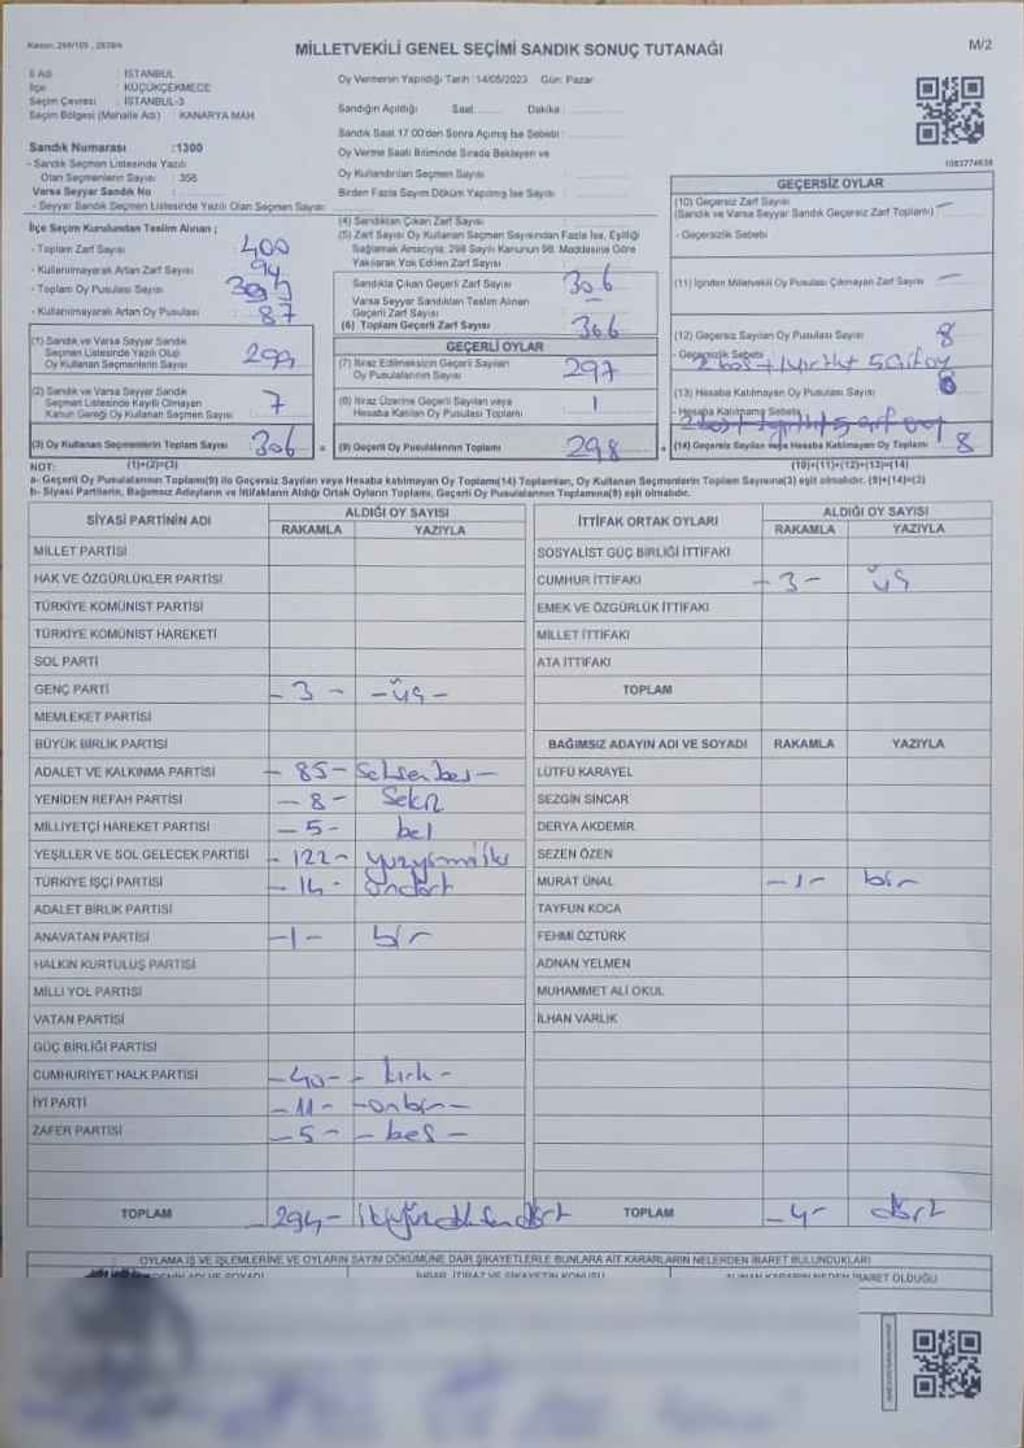 MİLLETVEKİLİ GENEL SEÇİMİ SANDIK SONUÇ TUTANAĞI
M/2
İl Adı : İSTANBUL
İlçe : KÜÇÜKÇEKMECE
Seçim Çevresi : İSTANBUL-3
Seçim Bölgesi (Mahalle Adı) : KANARYA MAH
Oy Vermenin Yapıldığı Tarih : 14/05/2023 Gün: Pazar
Sandığın Açıldığı Saat Dakika :
Sandık Saat 17:00'den Sonra Açılmış İse Sebebi :
Sandık Numarası :1300
- Sandık Seçmen Listesinde Yazılı
Olan Seçmenlerin Sayısı : 358
Varsa Seyyar Sandık No :
- Seyyar Sandık Seçmen Listesinde Yazılı Olan Seçmen Sayısı:
Oy Verme Saati Bitiminde Sırada Bekleyen ve
Oy Kullandırılan Seçmen Sayısı :
Birden Fazla Sayım Döküm Yapılmış İse Sayısı :
1083774638
İlçe Seçim Kurulundan Teslim Alınan ;
- Toplam Zarf Sayısı 400
- Kullanılmayarak Artan Zarf Sayısı 94
- Toplam Oy Pusulası Sayısı
- Kullanılmayarak Artan Oy Pusulası : 87
(1) Sandık ve Varsa Seyyar Sandık
Seçmen Listesinde Yazılı Olup
Oy Kullanan Seçmenlerin Sayısı 299
(2) Sandık ve Varsa Seyyar Sandık
Seçmen Listesinde Kayıtlı Olmayan
Kanun Gereği Oy Kullanan Seçmen Sayısı 7
(3) Oy Kullanan Seçmenlerin Toplam Sayısı 306
(1)+(2)=(3)
(4) Sandıktan Çıkan Zarf Sayısı
(5) Zarf Sayısı Oy Kullanan Seçmen Sayısından Fazla İse, Eşitliği
Sağlamak Amacıyla, 298 Sayılı Kanunun 98. Maddesine Göre
Yakılarak Yok Edilen Zarf Sayısı
Sandıkta Çıkan Geçerli Zarf Sayısı 306
Varsa Seyyar Sandıktan Teslim Alınan
Geçerli Zarf Sayısı
(6) Toplam Geçerli Zarf Sayısı 306
GEÇERLİ OYLAR
(7) İtiraz Edilmeksizin Geçerli Sayılan
Oy Pusulalarının Sayısı 297
(8) İtiraz Üzerine Geçerli Sayılan veya
Hesaba Katılan Oy Pusulası Toplamı 1
(9) Geçerli Oy Pusulalarının Toplamı 298
GEÇERSİZ OYLAR
(10) Geçersiz Zarf Sayısı
(Sandık ve Varsa Seyyar Sandık Geçersiz Zarf Toplamı) —
- Geçersizlik Sebebi
(11) İçinden Milletvekili Oy Pusulası Çıkmayan Zarf Sayısı —
(12) Geçersiz Sayılan Oy Pusulası Sayısı 8
- Geçersizlik Sebebi
(13) Hesaba Katılmayan Oy Pusulası Sayısı
- Hesaba Katılmama Sebebi
(14) Geçersiz Sayılan veya Hesaba Katılmayan Oy Toplamı 8
(10)+(11)+(12)+(13)=(14)
NOT:
a- Geçerli Oy Pusulalarının Toplamı(9) ile Geçersiz Sayılan veya Hesaba katılmayan Oy Toplamı(14) Toplamları, Oy Kullanan Seçmenlerin Toplam Sayısına(3) eşit olmalıdır. (9)+(14)=(3)
b- Siyasi Partilerin, Bağımsız Adayların ve İttifakların Aldığı Ortak Oyların Toplamı, Geçerli Oy Pusulalarının Toplamına(9) eşit olmalıdır.
SİYASİ PARTİNİN ADI ALDIĞI OY SAYISI
RAKAMLA YAZIYLA
MİLLET PARTİSİ
HAK VE ÖZGÜRLÜKLER PARTİSİ
TÜRKİYE KOMÜNİST PARTİSİ
TÜRKİYE KOMÜNİST HAREKETİ
SOL PARTİ
GENÇ PARTİ - 3 - - üç -
MEMLEKET PARTİSİ
BÜYÜK BİRLİK PARTİSİ
ADALET VE KALKINMA PARTİSİ - 85 - Seksen beş -
YENİDEN REFAH PARTİSİ - 8 - Sekiz
MİLLİYETÇİ HAREKET PARTİSİ - 5 - beş
YEŞİLLER VE SOL GELECEK PARTİSİ - 122 - yüzyirmiiki
TÜRKİYE İŞÇİ PARTİSİ - 14 - ondört
ADALET BİRLİK PARTİSİ
ANAVATAN PARTİSİ - 1 - bir
HALKIN KURTULUŞ PARTİSİ
MİLLİ YOL PARTİSİ
VATAN PARTİSİ
GÜÇ BİRLİĞİ PARTİSİ
CUMHURİYET HALK PARTİSİ - 40 - - kırk -
İYİ PARTİ - 11 - - onbir -
ZAFER PARTİSİ - 5 - - beş -
TOPLAM - 294 - ikiyüzdoksandört
İTTİFAK ORTAK OYLARI ALDIĞI OY SAYISI
RAKAMLA YAZIYLA
SOSYALİST GÜÇ BİRLİĞİ İTTİFAKI
CUMHUR İTTİFAKI - 3 - üç
EMEK VE ÖZGÜRLÜK İTTİFAKI
MİLLET İTTİFAKI
ATA İTTİFAKI
TOPLAM
BAĞIMSIZ ADAYIN ADI VE SOYADI RAKAMLA YAZIYLA
LÜTFÜ KARAYEL
SEZGİN SİNCAR
DERYA AKDEMİR
SEZEN ÖZEN
MURAT ÜNAL - 1 - bir
TAYFUN KOCA
FEHMİ ÖZTÜRK
ADNAN YELMEN
MUHAMMET ALİ OKUL
İLHAN VARLIK
TOPLAM - 4 - dört
OYLAMA İŞ VE İŞLEMLERİNE VE OYLARIN SAYIM DÖKÜMÜNE DAİR ŞİKAYETLERLE BUNLARA AİT KARARLARIN NELERDEN İBARET BULUNDUKLARI